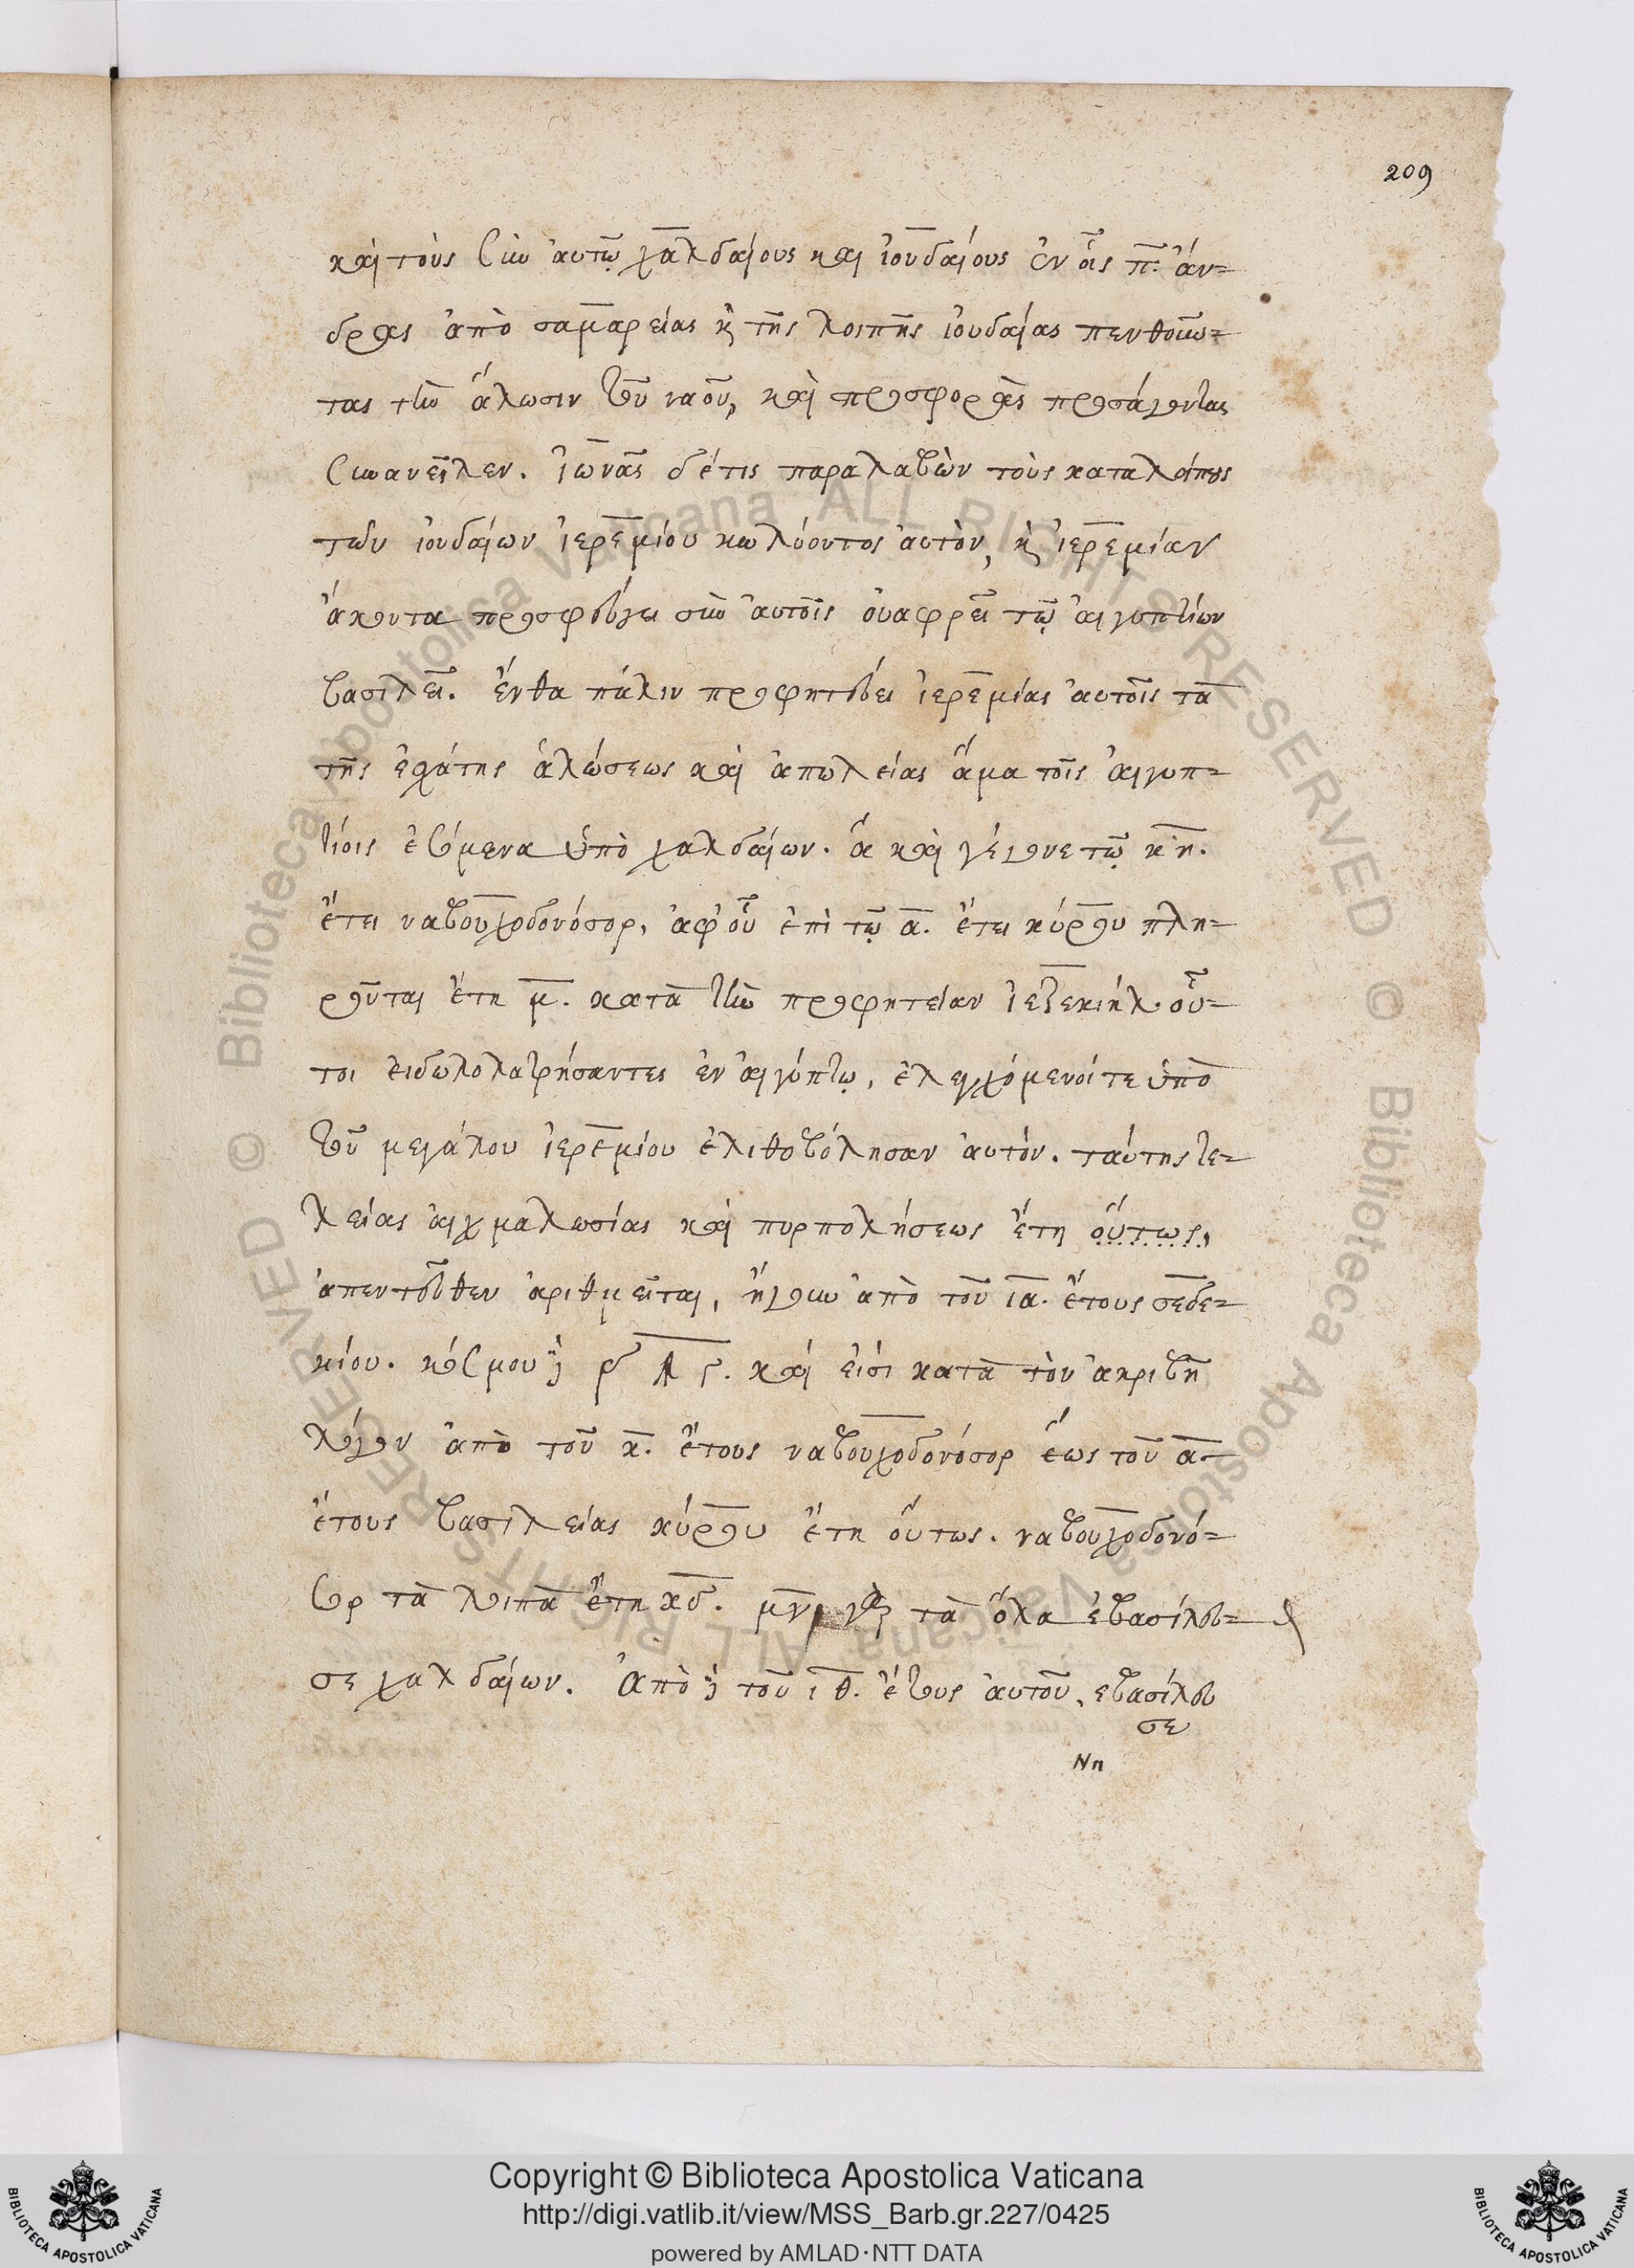 209
καὶ τοὺς σὺν αὐτῷ χαλδαίους και ἰουδαίους ἐν οἷς π. ἄν-
δρας ἀπὸ σαμαρείας κ τῆς λοιπῆς ἰουδαίας πενθοῦν-
τας τὴν ἅλωσιν τοῦ ναοῦ, καὶ προσφορὰς προσάγοντας
συνανεῖλεν. ἰωνᾶς δέ τις παραλαβὼν τοὺς καταλοίπους
τῶν ἰουδαίων ἱερεμίου κωλύοντος αὐτὸν, κ ἱερεμίαν
ἄκοντα προσφεύγει σὺν αὐτοῖς οὐαφρεῖ τῷ αἰγυπτίων
βασιλεῖ. ἔνθα πάλιν προφητεύει ἱερεμίας αὐτοῖς τὰ
τῆς ἐσχάτης ἁλώσεως καὶ ἀπωλείας ἅμα τοῖς αἰγυπ-
τίοις ἐσόμενα ὑπὸ χαλδαίων. ἃ καὶ γέγονε τῷ κη.
ἔτει ναβουχοδονόσορ, ἀφ' οὗ ἐπὶ τῷ α. ἔτει κύρου πλη-
ροῦται ἔτη μ. κατὰ τὴν προφητείαν ἰεζεκιήλ. οὗ-
τοι εἰδωλολατρήσαντες ἐν αἰγύπτῳ, ἐλεγχόμενοί τε ὑπὸ
τοῦ μεγάλου ἱερεμίου ἐλιθοβόλησαν αὐτόν. ταύτης τε-
λείας αἰχμαλωσίας καὶ πυρπολήσεως ἔτη οὕτως,
ἀπεντεῦθεν ἀριθμεῖται, ἤγουν ἀπὸ τοῦ ια. ἔτους σεδε-
κίου. κόσμου
καὶ εἰσὶ κατὰ τὸν ἀκριβῆ
λόγον ἀπὸ τοῦ κ. ἔτους ναβουχοδονόσορ ἕως τοῦ α.
ἔτους βασιλείας κύρου ἔτη οὕτως. ναβουχοδονό-
σορ τὰ λοιπὰ ἔτη κδ. μγ γὰρ τὰ ὅλα ἐβασίλευ-
σε χαλδαίων. Ἀπὸ τοῦ ιθ. ἔτους αὐτοῦ, ἐβασίλευ
σε
Nn
Copyright © Biblioteca Apostolica Vaticana
http://digi.vatlib.it/view/MSS_Barb.gr.227/0425
powered by AMLAD·NTT DATA
BIBLIOTECA APOSTOLICA VATICANA
BIBLIOTECA APOSTOLICA VATICANA
© Biblioteca Apostolica Vaticana ALL RIGHTS RESERVED
© Biblioteca Apostolica Vaticana ALL RIGHTS RESERVED